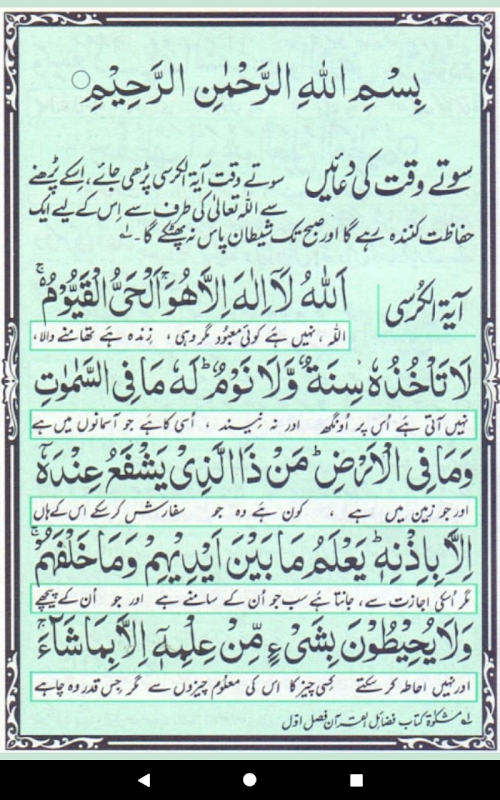 بِسْمِ اللهِ الرَّحْمٰنِ الرَّحِيْمِ
سوتے وقت کی دعائیں
سوتے وقت آیۃ الکرسی پڑھی جائے، اِسکے پڑھنے
سے اللہ تعالیٰ کی طرف سے اِس کے لیے ایک
حفاظت کنندہ رہے گا اور صبح تک شیطان پاس نہ پھٹکے گا۔ لہ
آیۃ الکُرسی
اَللهُ لَآ اِلٰهَ اِلَّا هُوَ ۚ اَلْحَيُّ الْقَيُّوْمُ ۚ
اللہ ، نہیں ہے کوئی معبُود مگر وہی ، زندہ ہے تھامنے والا،
لَا تَاْخُذُهٗ سِنَةٌ وَّلَا نَوْمٌ ؕ لَهٗ مَا فِی السَّمٰوٰتِ
نہیں آتی ہے اُس پر اُونگھ اور نہ نیند ، اُسی کا ہے جو آسمانوں میں ہے
وَمَا فِی الْاَرْضِ ؕ مَنْ ذَا الَّذِیْ يَشْفَعُ عِنْدَهٗٓ
اور جو زمین میں ہے ، کون ہے وہ جو سفارش کرسکے اس کے ہاں
اِلَّا بِاِذْنِهٖ ؕ يَعْلَمُ مَا بَيْنَ اَيْدِيْهِمْ وَمَا خَلْفَهُمْ ۚ
مگر اُسکی اجازت سے ، جانتا ہے سب جو اُن کے سامنے ہے اور جو اُن کے پیچھے
وَلَا يُحِيْطُوْنَ بِشَیْءٍ مِّنْ عِلْمِهٖٓ اِلَّا بِمَا شَآءَ ۚ
اور نہیں احاطہ کر سکتے کسی چیز کا اس کی معلوم چیزوں سے مگر جس قدر وہ چاہے
لہ مشکوٰۃ کتاب فضائل القرآن فصل اوّل